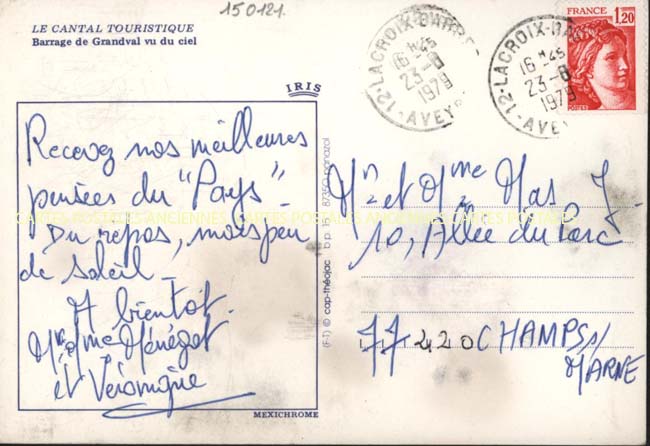 150121.
LE CANTAL TOURISTIQUE
Barrage de Grandval vu du ciel
IRIS
Recevez nos meilleures
pensées du "Pays"
Du repos, mais peu
de soleil_
A bientot.
Mr Mme Ménégot
et Véronique
MEXICHROME
(F-T) © cap-théojac b.p. 16 87350 panazol
12-LACROIX-BARRE
16H45
23-8
1979
AVEYR
12-LACROIX-BAR
16H45
23-8
1979
AVEY
FRANCE
1,20
POSTES
Mr et Mme Mas J.
10, Allée du Parc
77420 CHAMPS s/
MARNE
CARTES POSTALES ANCIENNES CARTES POSTALES ANCIENNES CARTES POSTALES